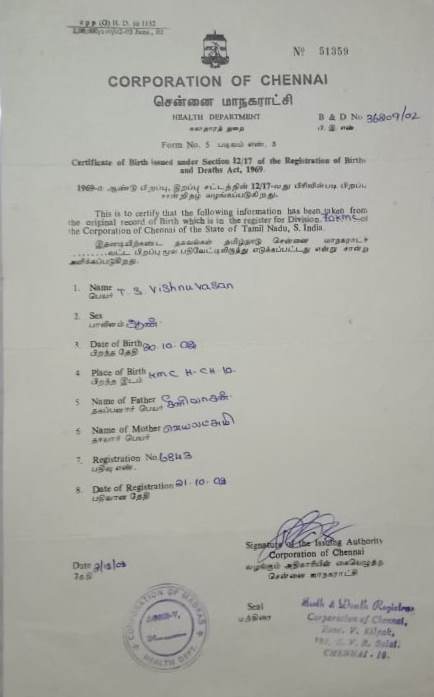 Nº 51359
CORPORATION OF CHENNAI
சென்னை மாநகராட்சி
HEALTH DEPARTMENT
சுகாதாரத் துறை
B & D No 36809/02
பி. இ. எண்
Form No. 5 படிவம் எண். 5
Certificate of Birth issued under Section 12/17 of the Registration of Births
and Deaths Act, 1969
1969-ம ஆண்டு பிறப்பு, இறப்பு சட்டத்தின் 12/17-வது பிரிவின்படி பிறப்பு
சான்றிதழ் வழங்கப்படுகிறது.
This is to certify that the following information has been taken from
the original record of Birth which is in the register for Division of
the Corporation of Chennai of the State of Tamil Nadu, S. India.
இதனடியிற்கண்ட தகவல்கள் தமிழ்நாடு சென்னை மாநகராட்சி
........வட்ட பிறப்பு மூல பதிவேட்டிலிருந்து எடுக்கப்பட்டது என்று சான்று
அளிக்கப்படுகிறது.
1. Name T. S. Vishnu Vasan
பெயர்
2. Sex
பாலினம் ஆண்
3. Date of Birth
பிறந்த தேதி
4. Place of Birth KMC H-CH-10
பிறந்த இடம்
5. Name of Father சீனிவாசன்
தகப்பனார் பெயர்
6. Name of Mother ஜெயலட்சுமி
தாயார் பெயர்
7. Registration No. 6843
பதிவு எண்.
8. Date of Registration
பதிவான தேதி
Signature of the Issuing Authority
Corporation of Chennai
வழங்கும் அதிகாரியின் கையெழுத்து
சென்னை மாநகராட்சி
Date
தேதி
Seal
முத்திரை
CORPORATION OF MADRAS
HEALTH DEPT.
Birth & Death Registrar
Corporation of Chennai,
Zone. V. Kilpak,
CHENNAI - 10.